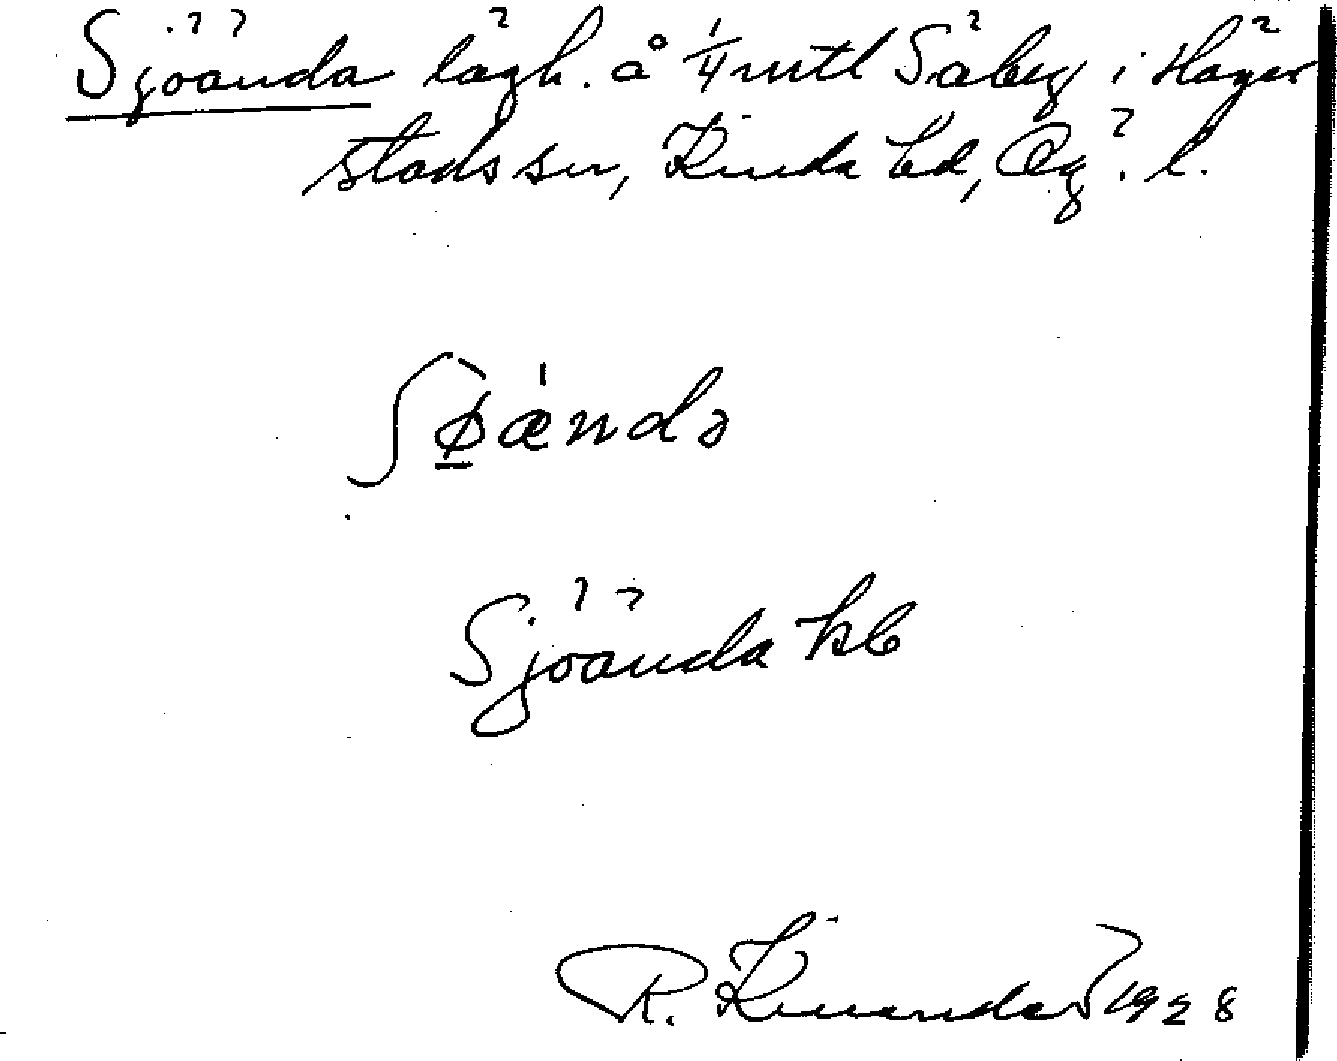 Sjöända lägh. å 1/4 mtl Säby i Häger
stads sn, Kinda hd, Ög. l.
ʃø̱̀ænde
Sjöända kb
R. Kinander 1928